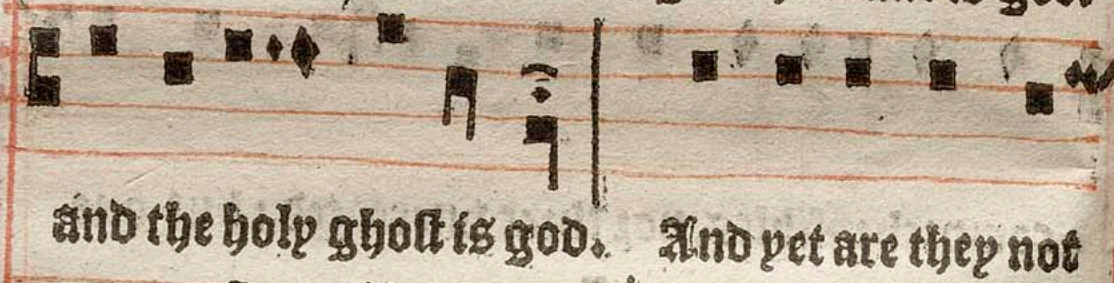 and the holy ghost is god. And yet are they not